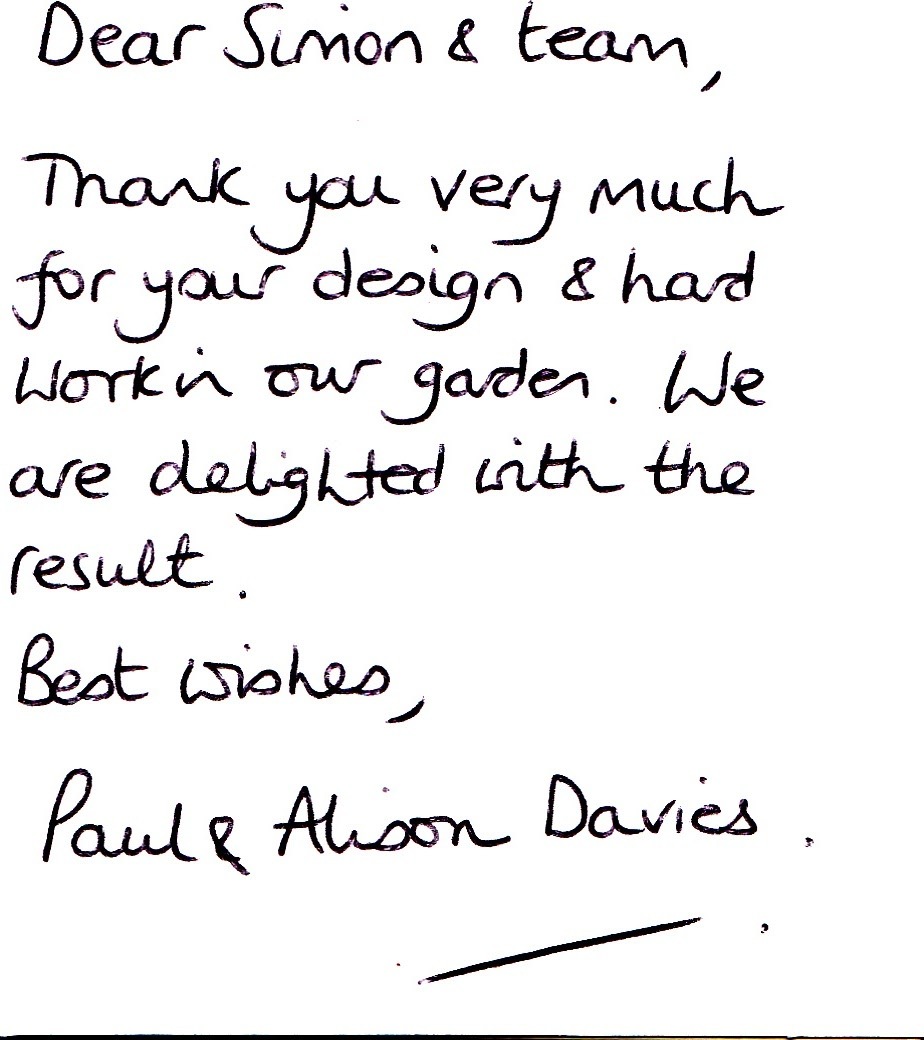 Dear Simon & team,
Thank you very much
for your design & hard
work in our garden. We
are delighted with the
result.
Best wishes,
Paul & Alison Davies.